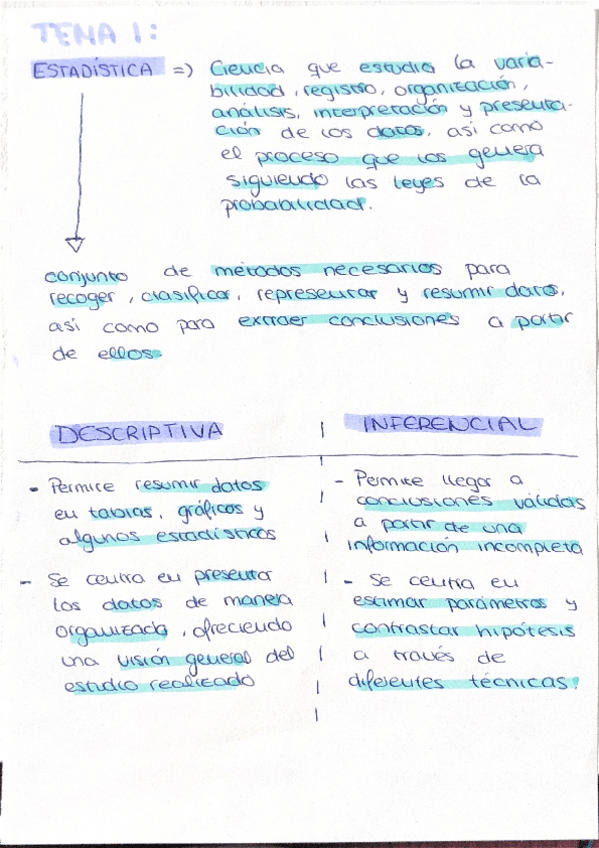 TEMA 1:
ESTADÍSTICA => Ciencia que estudia la varia-
bilidad, registro, organización,
análisis, interpretación y presenta-
ción de los datos, así como
el proceso que los genera
siguiendo las leyes de la
probabilidad.
conjunto de métodos necesarios para
recoger, clasificar, representar y resumir datos,
así como para extraer conclusiones a partir
de ellos.
DESCRIPTIVA
- Permite resumir datos
en tablas, gráficos y
algunos estadísticos
- Se centra en presentar
los datos de manera
organizada, ofreciendo
una visión general del
estudio realizado
INFERENCIAL
- Permite llegar a
conclusiones válidas
a partir de una
información incompleta
- Se centra en
estimar parámetros y
contrastar hipótesis
a través de
diferentes técnicas.